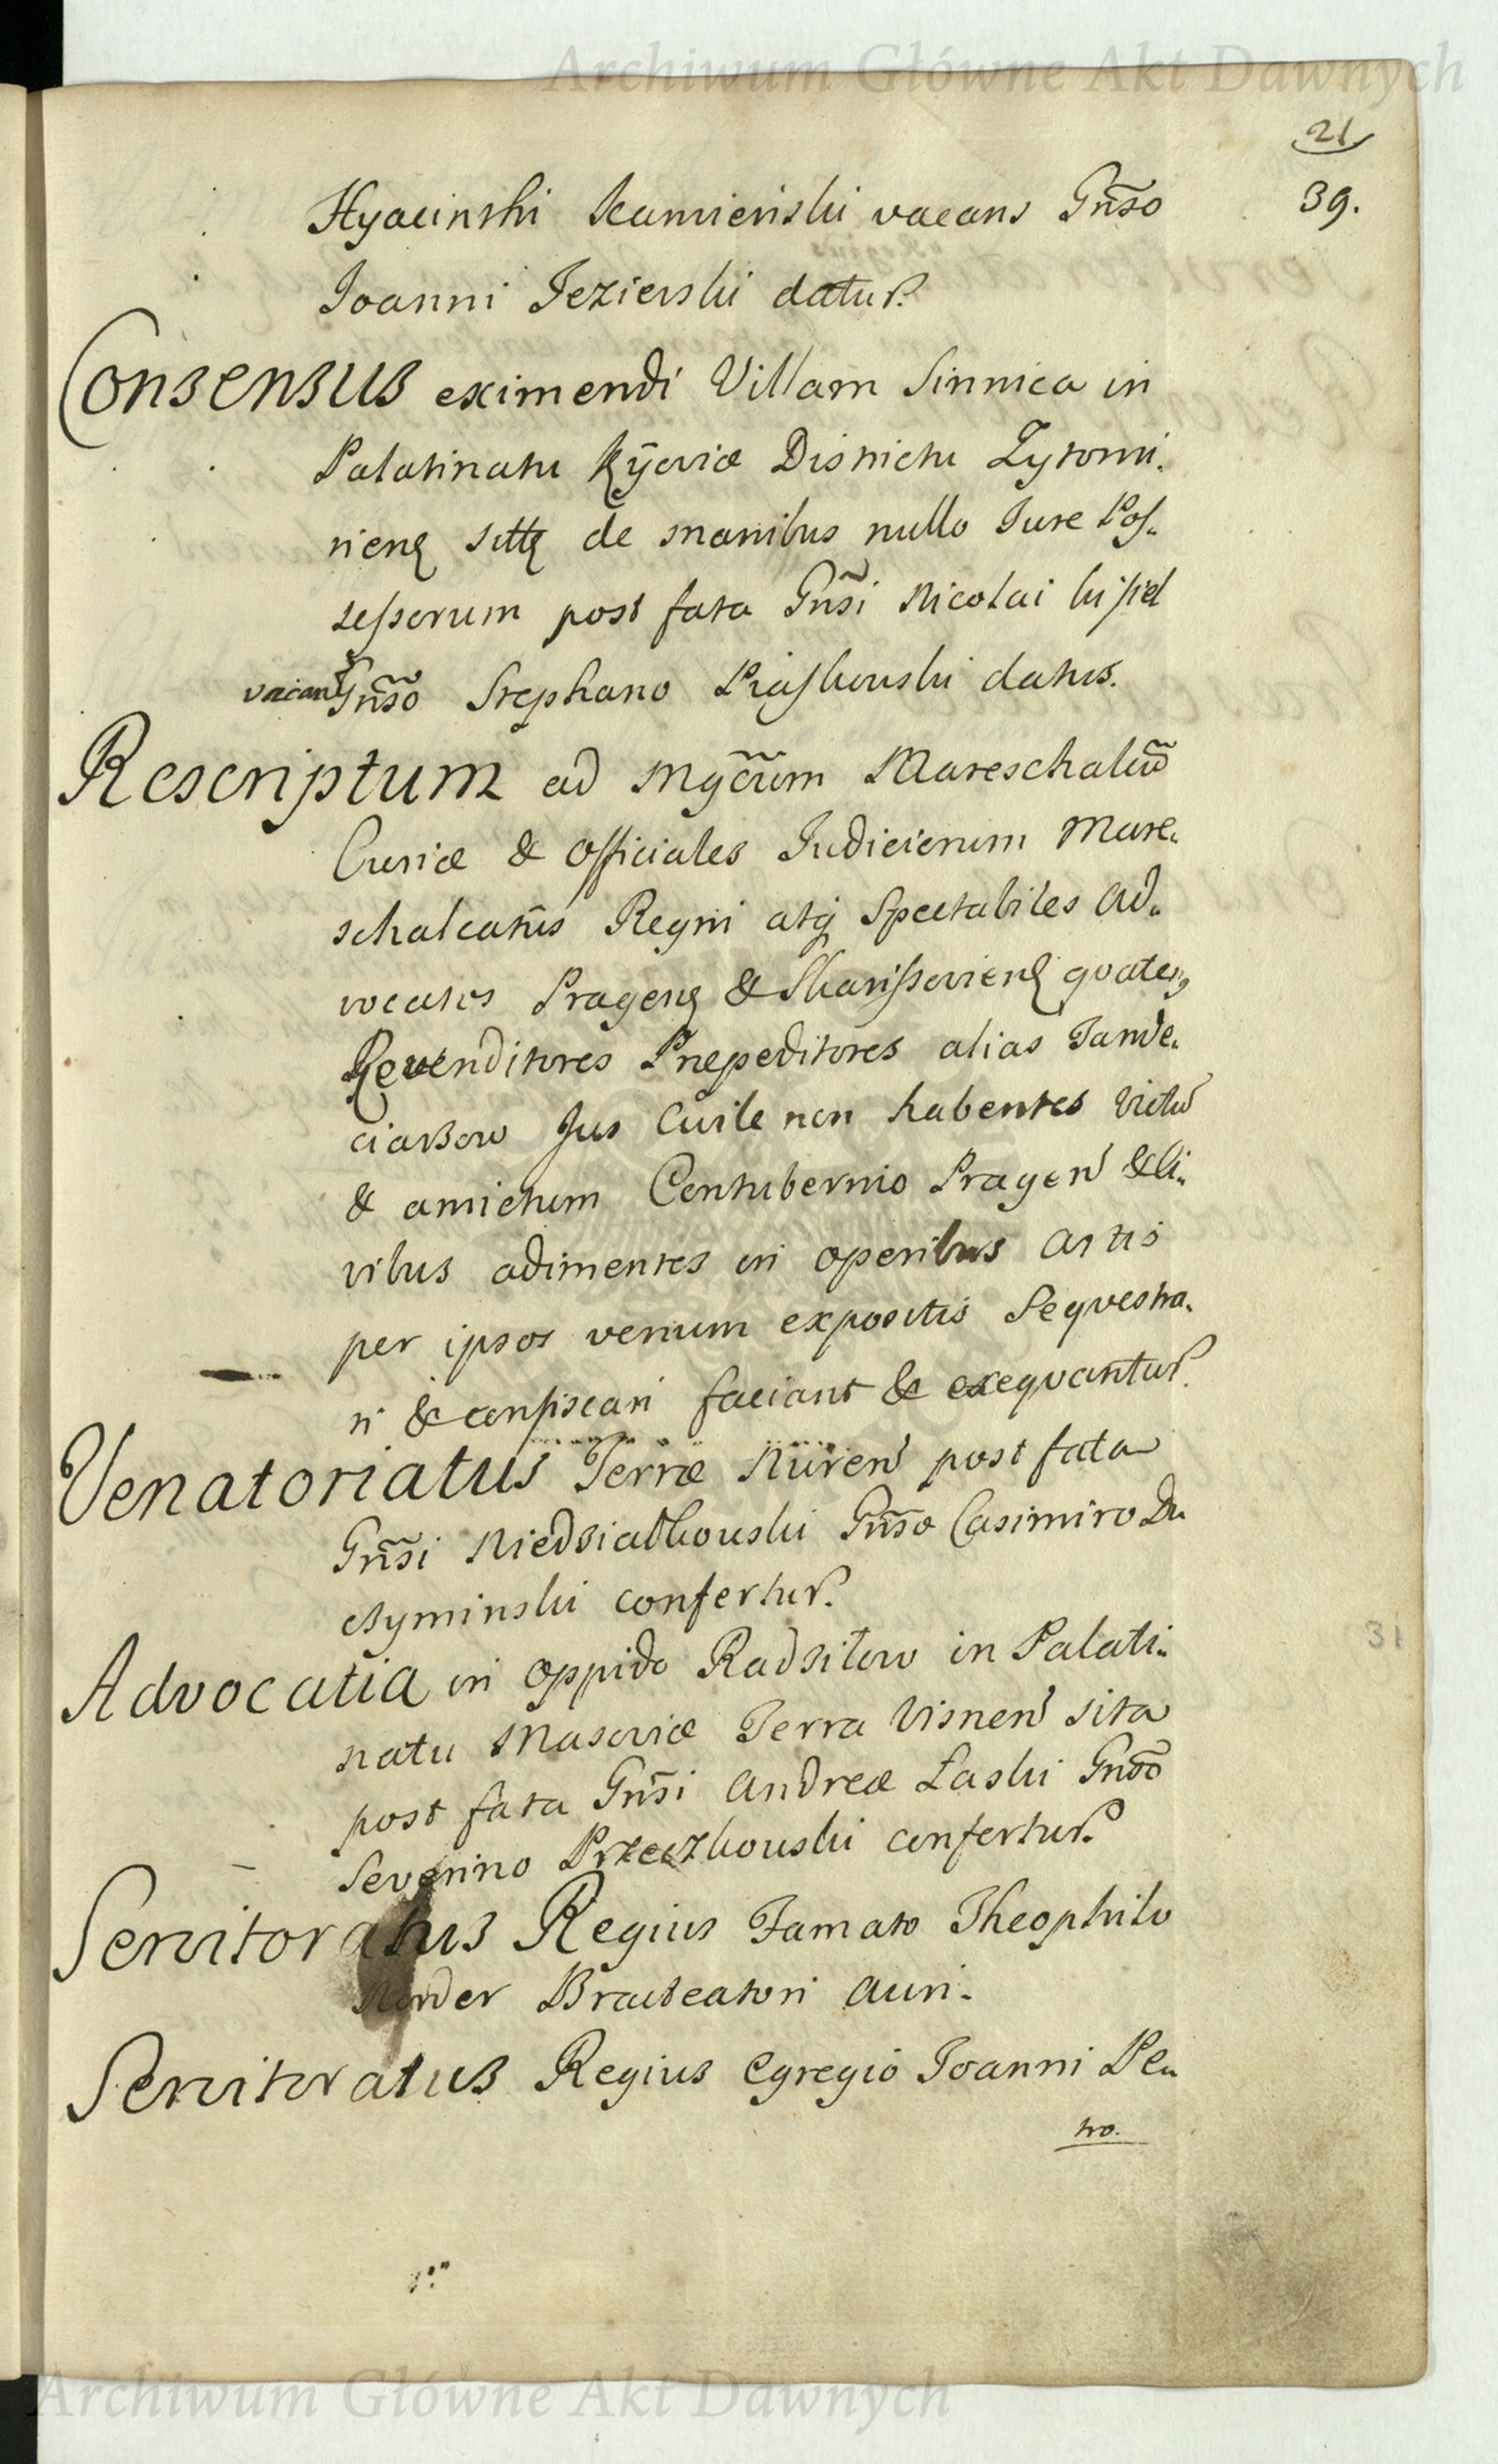 Archiwum Główne Akt Dawnych
21
39.
Hyacinthi Kamieński vacans Gnso
Joanni Jezierski datur.
Consensus eximendi Villam Sinnica in
Palatinatu Kijoviæ Districtu Zytomi.
rienq sittq de manibus nullo Jure Pos.
sessorum post fata Gnsi Nicolai
vacan Gnso Stephano Piaskowski datus.
Rescriptum ad Mgcum Mareschalcu
Curiæ & Officiales Judiciorum Mare.
schalcatus Regni atq Spectabiles Ad.
vocatos Prageng & Skariszovienq quateng
Revenditores Præpeditores alias Tande.
ciarzow Jus Civile non habentes victu
& amictum Contubernio Pragen & Ci.
vibus adimentes in operibus Artis
per ipsos venum expositis Sequestra.
ri & confiscari faciant & exequantur.
Venatoriatus Terræ Nuren post fata
Gnsi Niedzialkowski Gnso Casimiro Du
czyminski confertur.
Advocatia in Oppido Radzilow in Palati.
natu Masoviæ Terra Visnen sita
post fata Gnsi Andreæ Laski Gnso
Severino Przeczkowski confertur.
Servitoratus Regius Famato Theophilo
Bracteatori Auri.
Servitoratus Regius Egregio Joanni Pe
tro.
31
Archiwum Główne Akt Dawnych